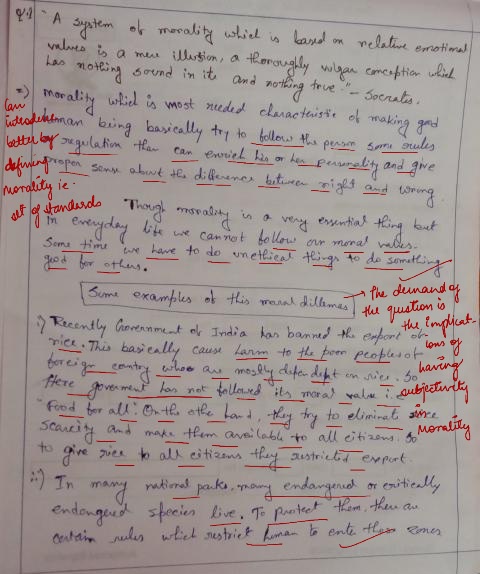 Q.1 "A system of morality which is based on relative emotional
values is a mere illusion, a thoroughly vulgar conception which
has nothing sound in it and nothing true." - Socrates.
=) Morality which is most needed characteristic of making good
human being basically try to follow the person some rules
regulation than can enrich his or her personality and give
proper sense about the difference between right and wrong.
Can
introduce
better by
defining
morality i.e.
set of standards
Though morality is a very essential thing but
in everyday life we cannot follow our moral values.
Some time we have to do unethical things to do something
good for others.
Some examples of this moral dillemas
→ The demand of
the question is
the implicat-
ions of
having
subjectivity
in
Morality
i) Recently Government of India has banned the export of
rice. This basically cause harm to the poor peoples of
foreign country whose are mostly dependept on rice. So
Here goverment has not followed its moral value i.e
"Food for all". On the othe hand, they try to eliminate rice
scarcity and make them available to all citizens. So
to give rice to all citizens they restricted export.
ii) In many national parks, many endangered or critically
endangered species live. To protect them, there are
certain rules which restrict human to enter those zones